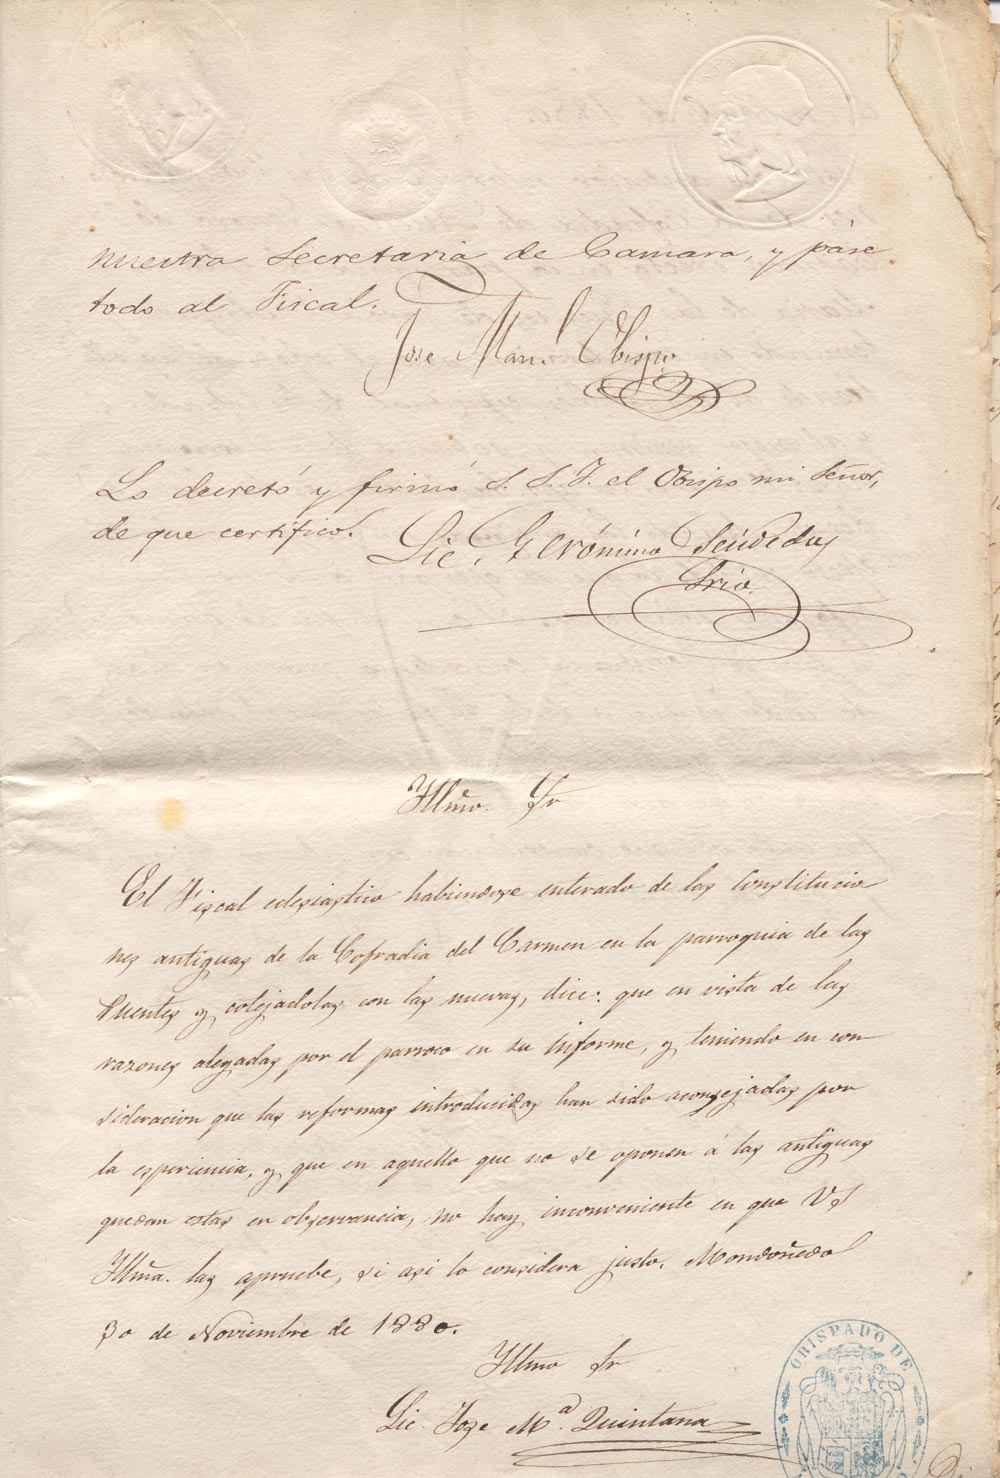 nuestra Secretaria de Camara, y páse
todo al Fiscal.
Jose Man.l Obispo
Lo decretó y firmó S. S. I. el Obispo mi Señor,
de que certifico.
Lic. Gerónimo
Srio.
Illmo. Sr
El Fiscal eclesiastico habiendose enterado de las Constitucio
nes antiguas de la Cofradia del Carmen en la parroquia de las
Puentes y cotejadolas con las nuevas, dice: que en vista de las
razones alegadas por el parroco en su informe, y teniendo en con
sideracion que las reformas introducidas han sido aconsejadas por
la espiriencia, y que en aquello que no se oponen á las antiguas
quedan estas en observancia, no hay inconveniente en que V. S
Illma. las apruebe, si asi lo considera justo. Mondoñedo
30 de Noviembre de 1880.
Illmo Sr
Lic. Jose M.a Quintana
OBISPADO DE